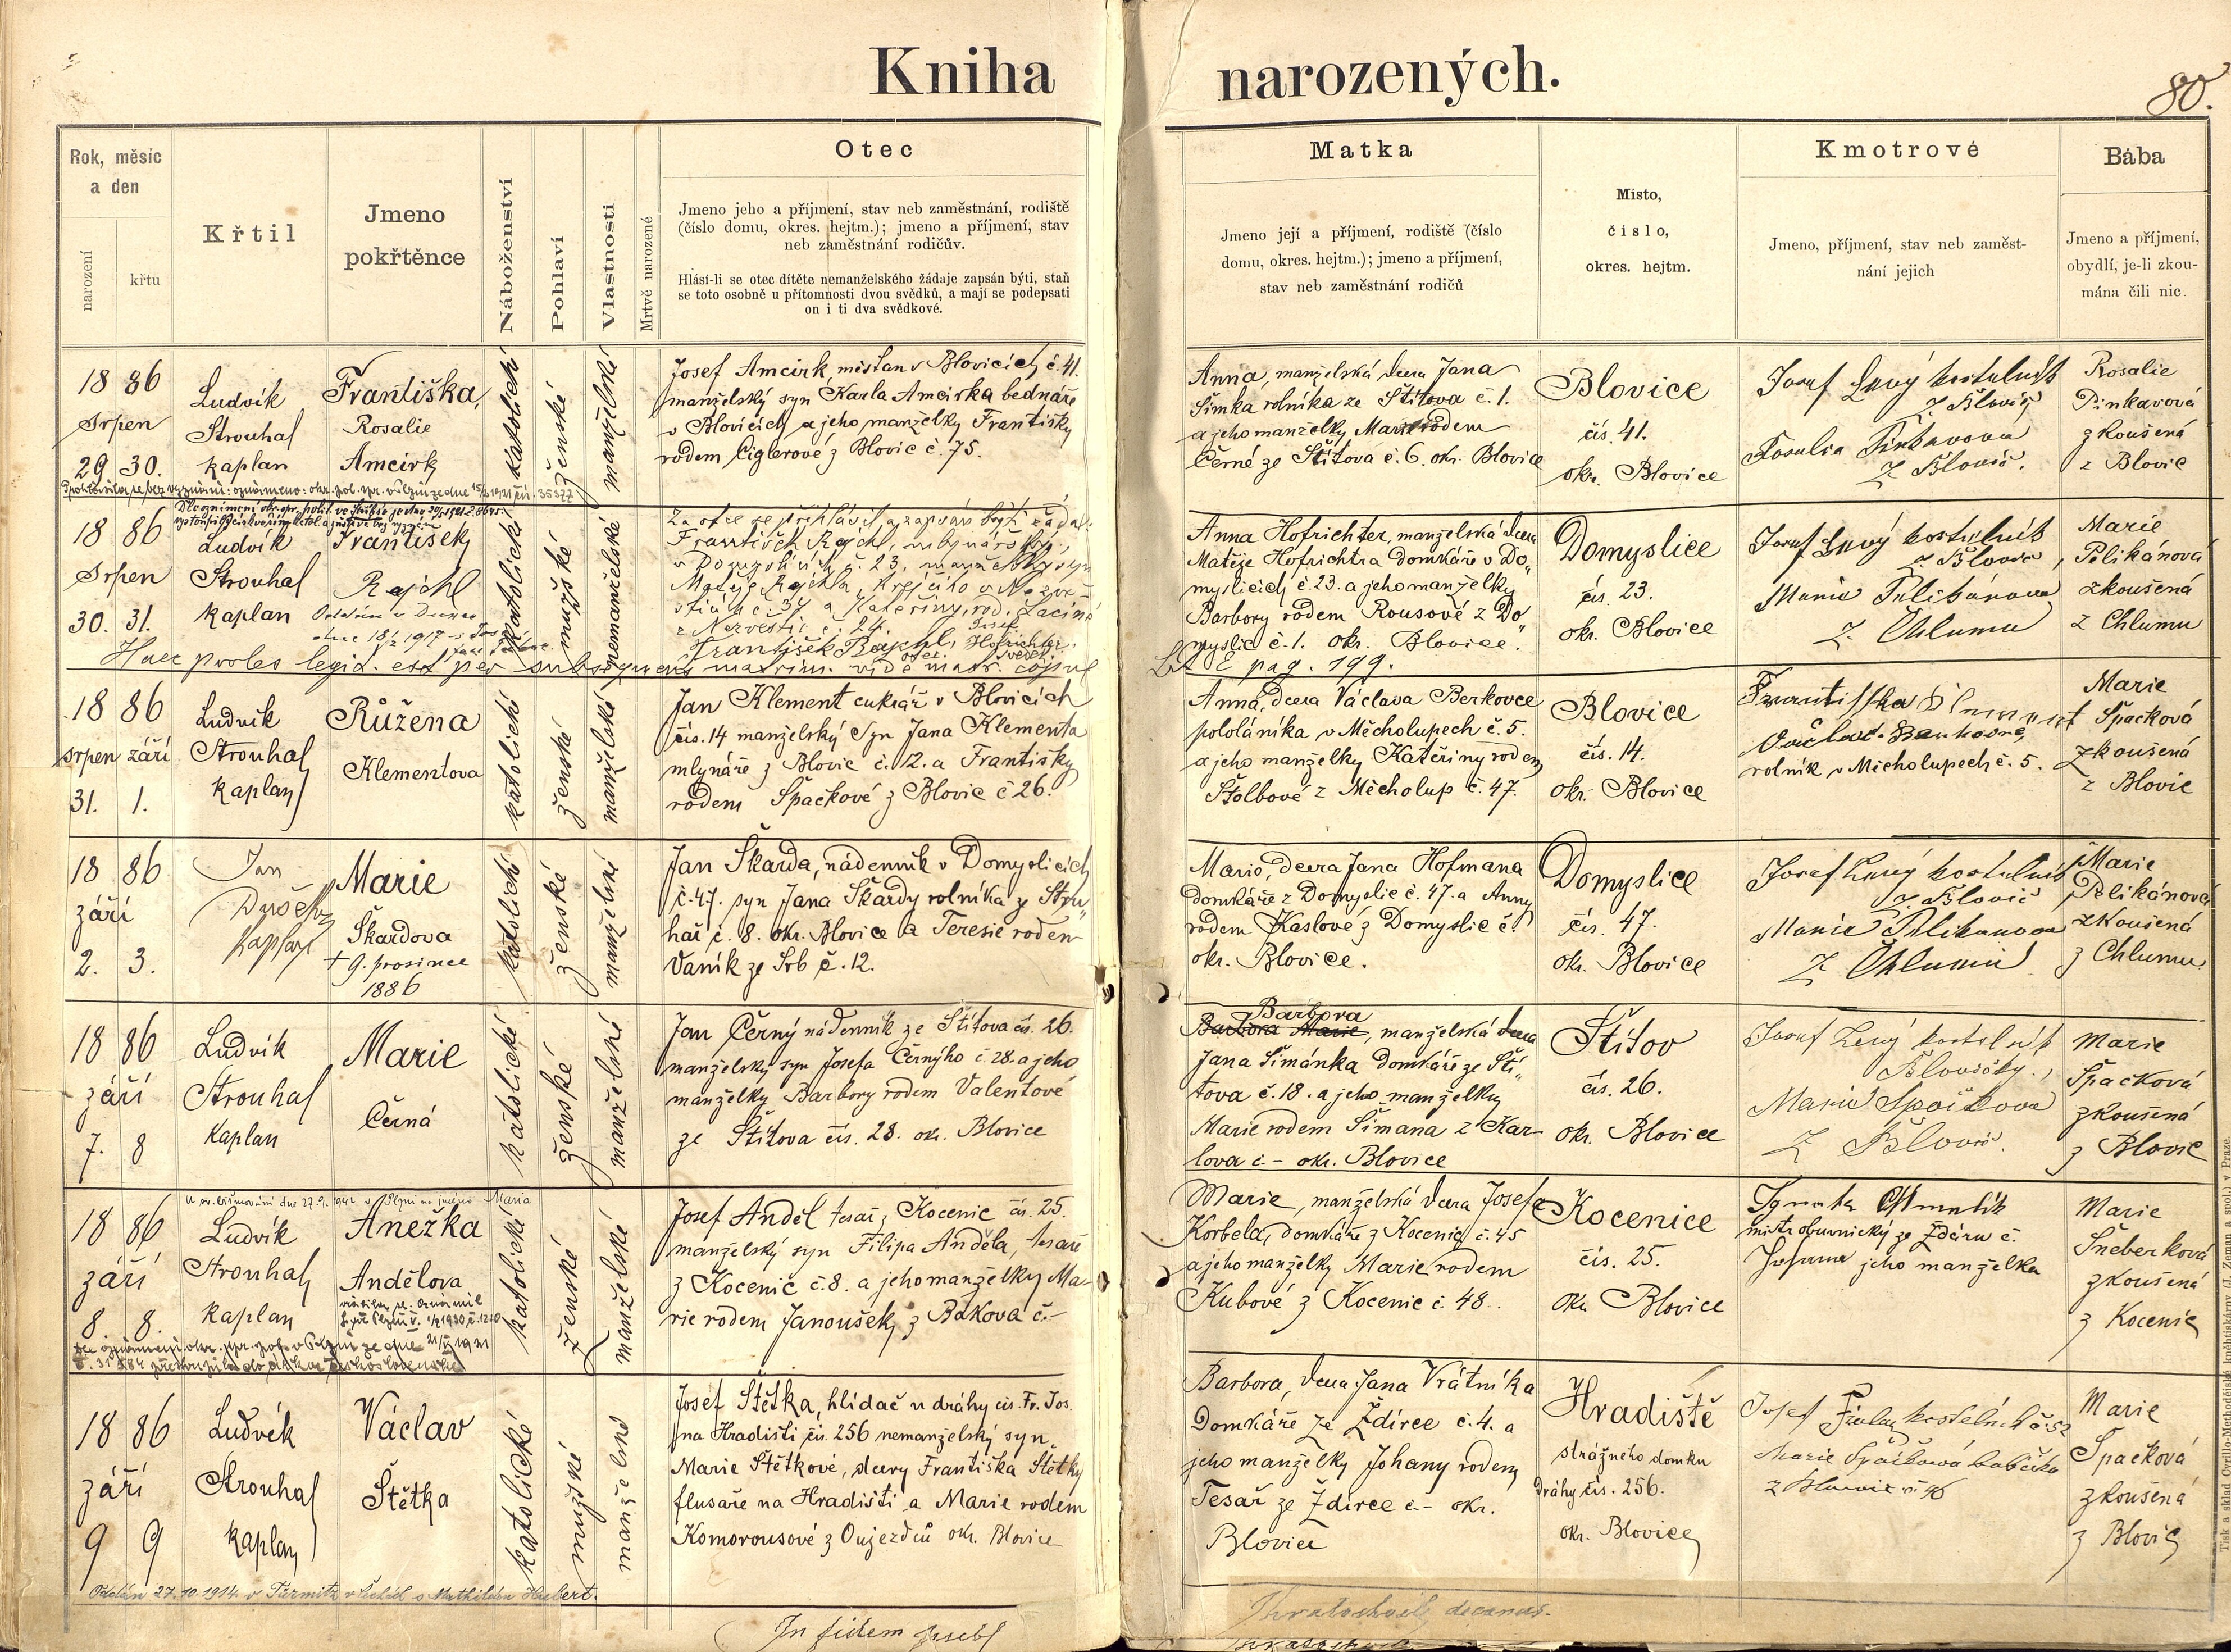 Kniha narozených.
80.
Rok, měsíc
a den
narození
křtu
Křtil
Jmeno
pokřtěnce
Náboženství
Pohlaví
Vlastnosti
Mrtvě narozené
Otec
Jmeno jeho a příjmení, stav neb zaměstnání, rodiště
(číslo domu, okres. hejtm.); jmeno a příjmení, stav
neb zaměstnání rodičův.
Hlásí-li se otec dítěte nemanželského žádaje zapsán býti, staň
se toto osobně u přítomnosti dvou svědků, a mají se podepsati
on i ti dva svědkové.
Matka
Jmeno její a příjmení, rodiště (číslo
domu, okres. hejtm.); jmeno a příjmení,
stav neb zaměstnání rodičů
Místo,
číslo,
okres. hejtm.
Kmotrové
Jmeno, příjmení, stav neb zaměst-
nání jejich
Bába
Jmeno a příjmení,
obydlí, je-li zkou-
mána čili nic.
18 86
Srpen
29 30.
Ludvík
Strouhal
kaplan
Františka,
Rosalie
Amcirk
katolické
ženské
manželské
Josef Amcirk měštan v Blovicích č. 41.
manželský syn Karla Amcirka bednáře
v Blovicích a jeho manželky Františky
rodem Ciglerové z Blovic č. 75.
Anna, manželská dcera Jana
Šimka rolníka ze Štítova č. 1.
a jeho manželky Marie rodem
Černé ze Štítova č. 6. okr. Blovice
Blovice
čís. 41.
okr. Blovice
Josef Levý kostelník
z Blovic
Rosalia Pinkavova
z Blovic.
Rosalie
Pinkavová
zkoušená
z Blovic
18 86
Srpen
30. 31.
Ludvík
Strouhal
kaplan
František
Rajchl
katolické
mužské
nemanželské
Za otce se přihlásil a zapsán být žádal:
František Rajchl,
v Domyslicích č. 23, manželský syn
Matěje Rajchla, krejčího v Nezvě-
sticích č. 37 a Kateřiny, rod. Laciné
z Nezvěstic č. 24.
František Rajchl, Josef Hofrichter,
otec. svědek.
Haec proles legit. est per subsequens matrim. vide matr. copul
Lit. E pag. 199.
Anna Hofrichter, manželská dcera
Matěje Hofrichtra domkáře v Do„
myslicích č. 23. a jeho manželky
Barbory rodem Rousové z Do„
myslic č. 1. okr. Blovice.
Domyslice
čís. 23.
okr. Blovice
Josef Levý kostelník
z Blovic,
Marie Pelikánova
z Chlumu
Marie
Pelikánová
zkoušená
z Chlumu
18 86
srpen září
31. 1.
Ludvík
Strouhal
kaplan
Růžena
Klementova
katolické
ženské
manželské
Jan Klement cukrář v Blovicích
čís. 14 manželský syn Jana Klementa
mlynáře z Blovic č. 12. a Františky
rodem Špačkové z Blovic č 26.
Anna, dcera Václava Berkovce
pololáníka v Měcholupech č. 5.
a jeho manželky Kateřiny rodem
Štolbové z Měcholup č. 47.
Blovice
čís. 14.
okr. Blovice
Frantisska Klement
Václav Berkovec,
rolník v Měcholupech č. 5.
Marie
Špačková
zkoušená
z Blovic
18 86
září
2. 3.
Jan
Dušek
Kaplan
Marie
Škardova
+ 9. prosince
1886
katolické
ženské
manželské
Jan Škarda, nádenník v Domyslicích
č. 47. syn Jana Škardy rolníka ze Stru„
hař č. 8. okr. Blovice a Teresie rodem
Vaník ze Srb č. 12.
Marie, dcera Jana Hofmana
domkáře z Domyslic č. 47. a Anny
rodem Kaslové z Domyslic č.
okr. Blovice.
Domyslice
čís. 47.
okr. Blovice
Josef Levý kostelník
z Blovic
Marie Pelikanova
z Chlumu
Marie
Pelikánová
zkoušená
z Chlumu
18 86
září
7. 8
Ludvík
Strouhal
Kaplan
Marie
Černá
katolické
ženské
manželské
Jan Černý nádenník ze Štítova čís. 26.
manželský syn Josefa Černýho č. 28. a jeho
manželky Barbory rodem Valentové
ze Štítova čís. 28. okr. Blovice
Barbora
Barbora Marie, manželská dcera
Jana Šimánka domkáře ze Ští„
tova č. 18. a jeho manželky
Marie rodem Šimana z Kar-
lova č. - okr. Blovice
Štítov
čís. 26.
okr. Blovice
Josef Levý kostelník
Marie Špačkova
z Blovic.
Marie
Špačková
zkoušená
z Blovic
U sv. biřmování dne 27. 9. 1942 v Plzni na jméno Maria
18 86
září
8. 8.
Ludvík
Strouhal
kaplan
Anežka
Andělova
katolické
ženské
manželské
Josef Anděl tesař z Kocenic čís. 25.
manželský syn Filipa Anděla, tesaře
z Kocenic č. 8. a jeho manželky Ma-
rie rodem Janoušek z Bakova č. -
Marie, manželská dcera Josefa
Korbela, domkáře z Kocenic č. 45
a jeho manželky Marie rodem
Kubové z Kocenic č. 48.
Kocenice
čís. 25.
okr. Blovice
mistr obuvnický ze Ždáru č.
jeho manželka
Marie
Šneberková
zkoušená
z Kocenic
18 86
září
9 9
Ludvík
Strouhal
kaplan
Václav
Štětka
katolické
mužské
manželské
Josef Štětka, hlídač u dráhy cís. Fr. Jos.
na Hradišti čís. 256 nemanželský syn
Marie Štětkové, dcery Františka Štětky
flusaře na Hradišti a Marie rodem
Komorousové z Oujezdců okr. Blovice
Barbora, dcera Jana Vrátníka
Domkáře ze Ždírce č. 4. a
jeho manželky Johany rodem
Tesař ze Ždírce č. - okr.
Blovice
Hradiště
strážného domku
dráhy čís. 256.
okr. Blovice
Josef Fiala kostelník č. 52
Marie Špačkowá babička
z Blovic č. 46
Marie
Špačková
zkoušená
z Blovic
Oddán 27. 10. 1914. v Türmitz v Čechách s Mathildou Hubert.
In fidem
decanus.
Tisk a sklad Cyrillo-Methodějské knihtiskárny (J. Zeman a spol.) v Praze.